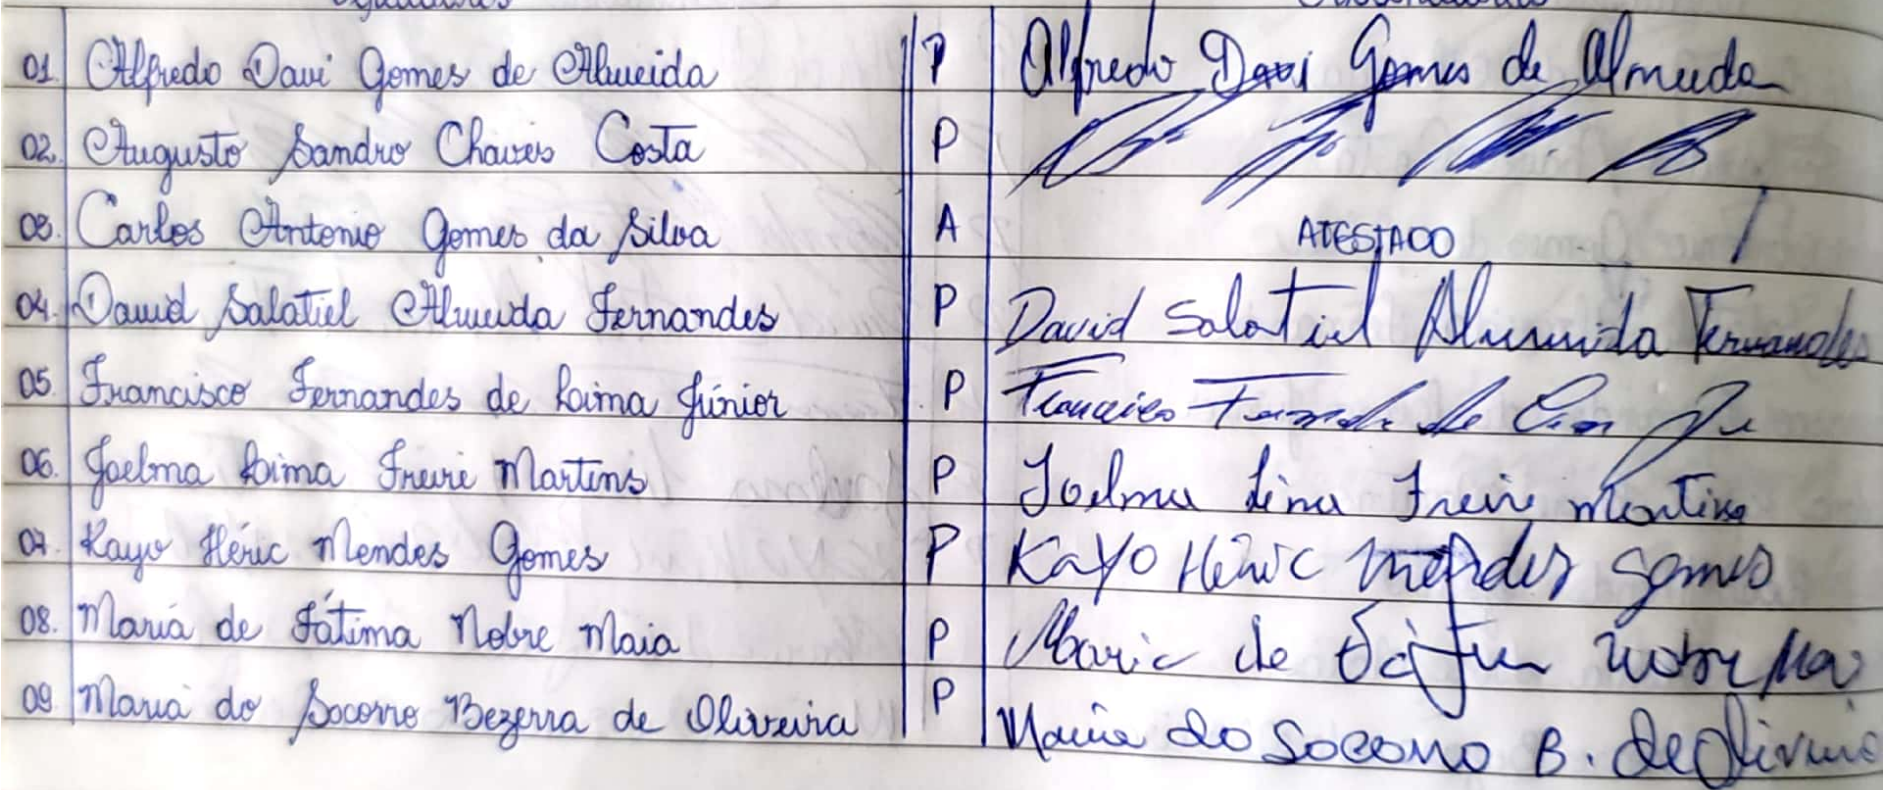 01. Alfredo Davi Gomes de Almeida P Alfredo Davi Gomes de Almeida
02. Augusto Sandro Chaves Costa P
03. Carlos Antonio Gomes da Silva A ATESTADO
04. David Salatiel Almeida Fernandes P David Salatiel Almeida Fernandes
05. Francisco Fernandes de Lima Júnior P Francisco Fernandes de Lima Jr
06. Joelma Lima Freire Martins P Joelma Lima Freire Martins
07. Kayo Héric Mendes Gomes P Kayo Héric Mendes Gomes
08. Maria de Fátima Nobre Maia P Maria de Fátima Nobre Maia
09. Maria do Socorro Bezerra de Oliveira P Maria do Socorro B. de Oliveira